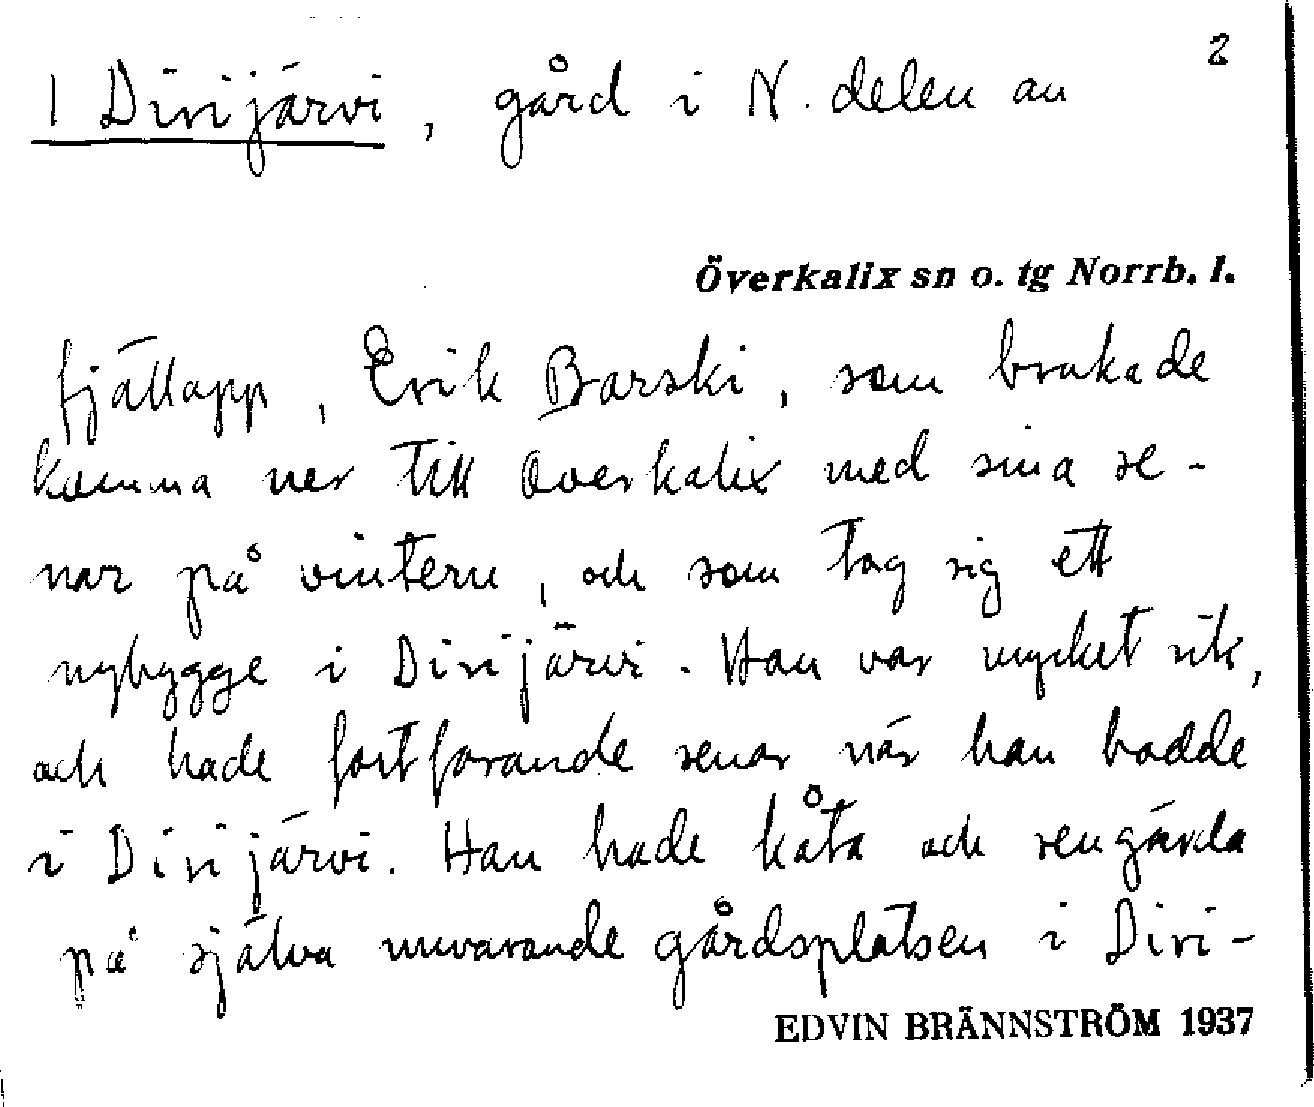 2
1 Dirijärvi, gård i N. delen av
Överkalix sn o. tg Norrb. l.
fjällapp, Erik Barski, som brukade
komma ner till Överkalix med sina re-
nar på vintern, och som tog sig ett
nybygge i Dirijärvi. Han var mycket rik,
och hade fortfarande renar när han bodde
i Dirijärvi. Han hade kåta och rengärda
på själva nuvarande gårdsplatsen i Diri-
EDVIN BRÄNNSTRÖM 1937